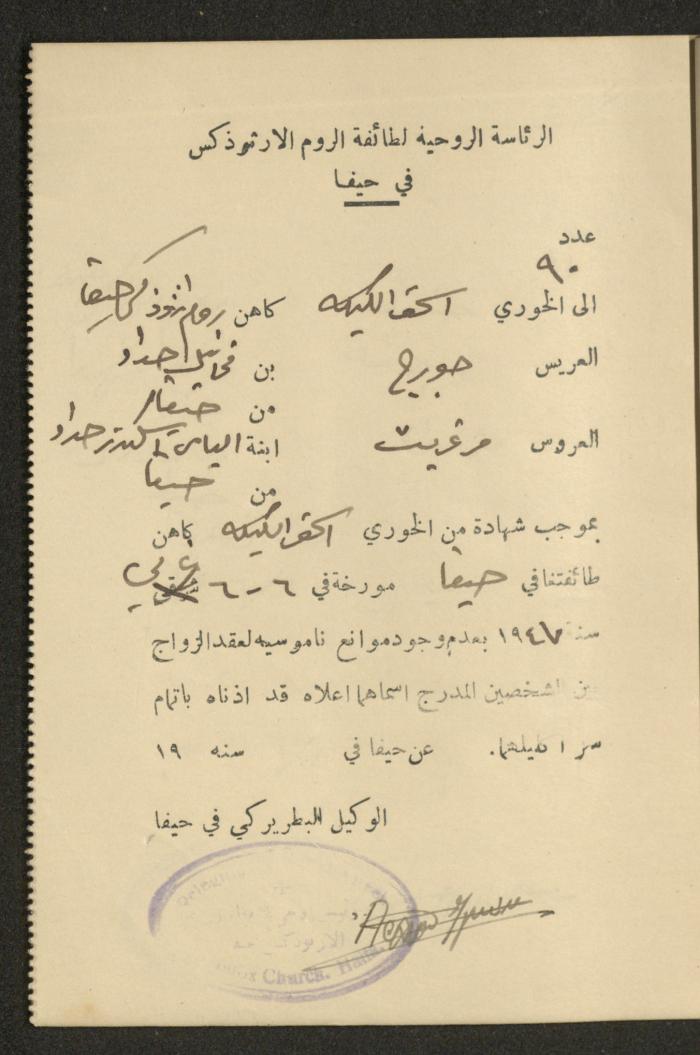 الرئاسة الروحية لطائفة الروم الارثوذكس
في حيفا
عدد
٩٠
الى الخوري اسحق الكيله كاهن روم ارثوذكس حيفا
العريس جورج بن مخائيل حداد
من حيفا
العروس مرغريت ابنة الياس اسكندر حداد
من حيفا
بموجب شهادة من الخوري اسحق الكيله كاهن
طائفتنا في حيفا مورخة في ٦ - ٦ شرقي غربي
سنة ١٩٤٧ بعدم وجود موانع ناموسيه لعقد الزواج
بين الشخصين المدرج اسماهما اعلاه قد اذناه باتمام
سر اكليلهما. عن حيفا في سنه ١٩
الوكيل البطريركي في حيفا
Church. Haifa